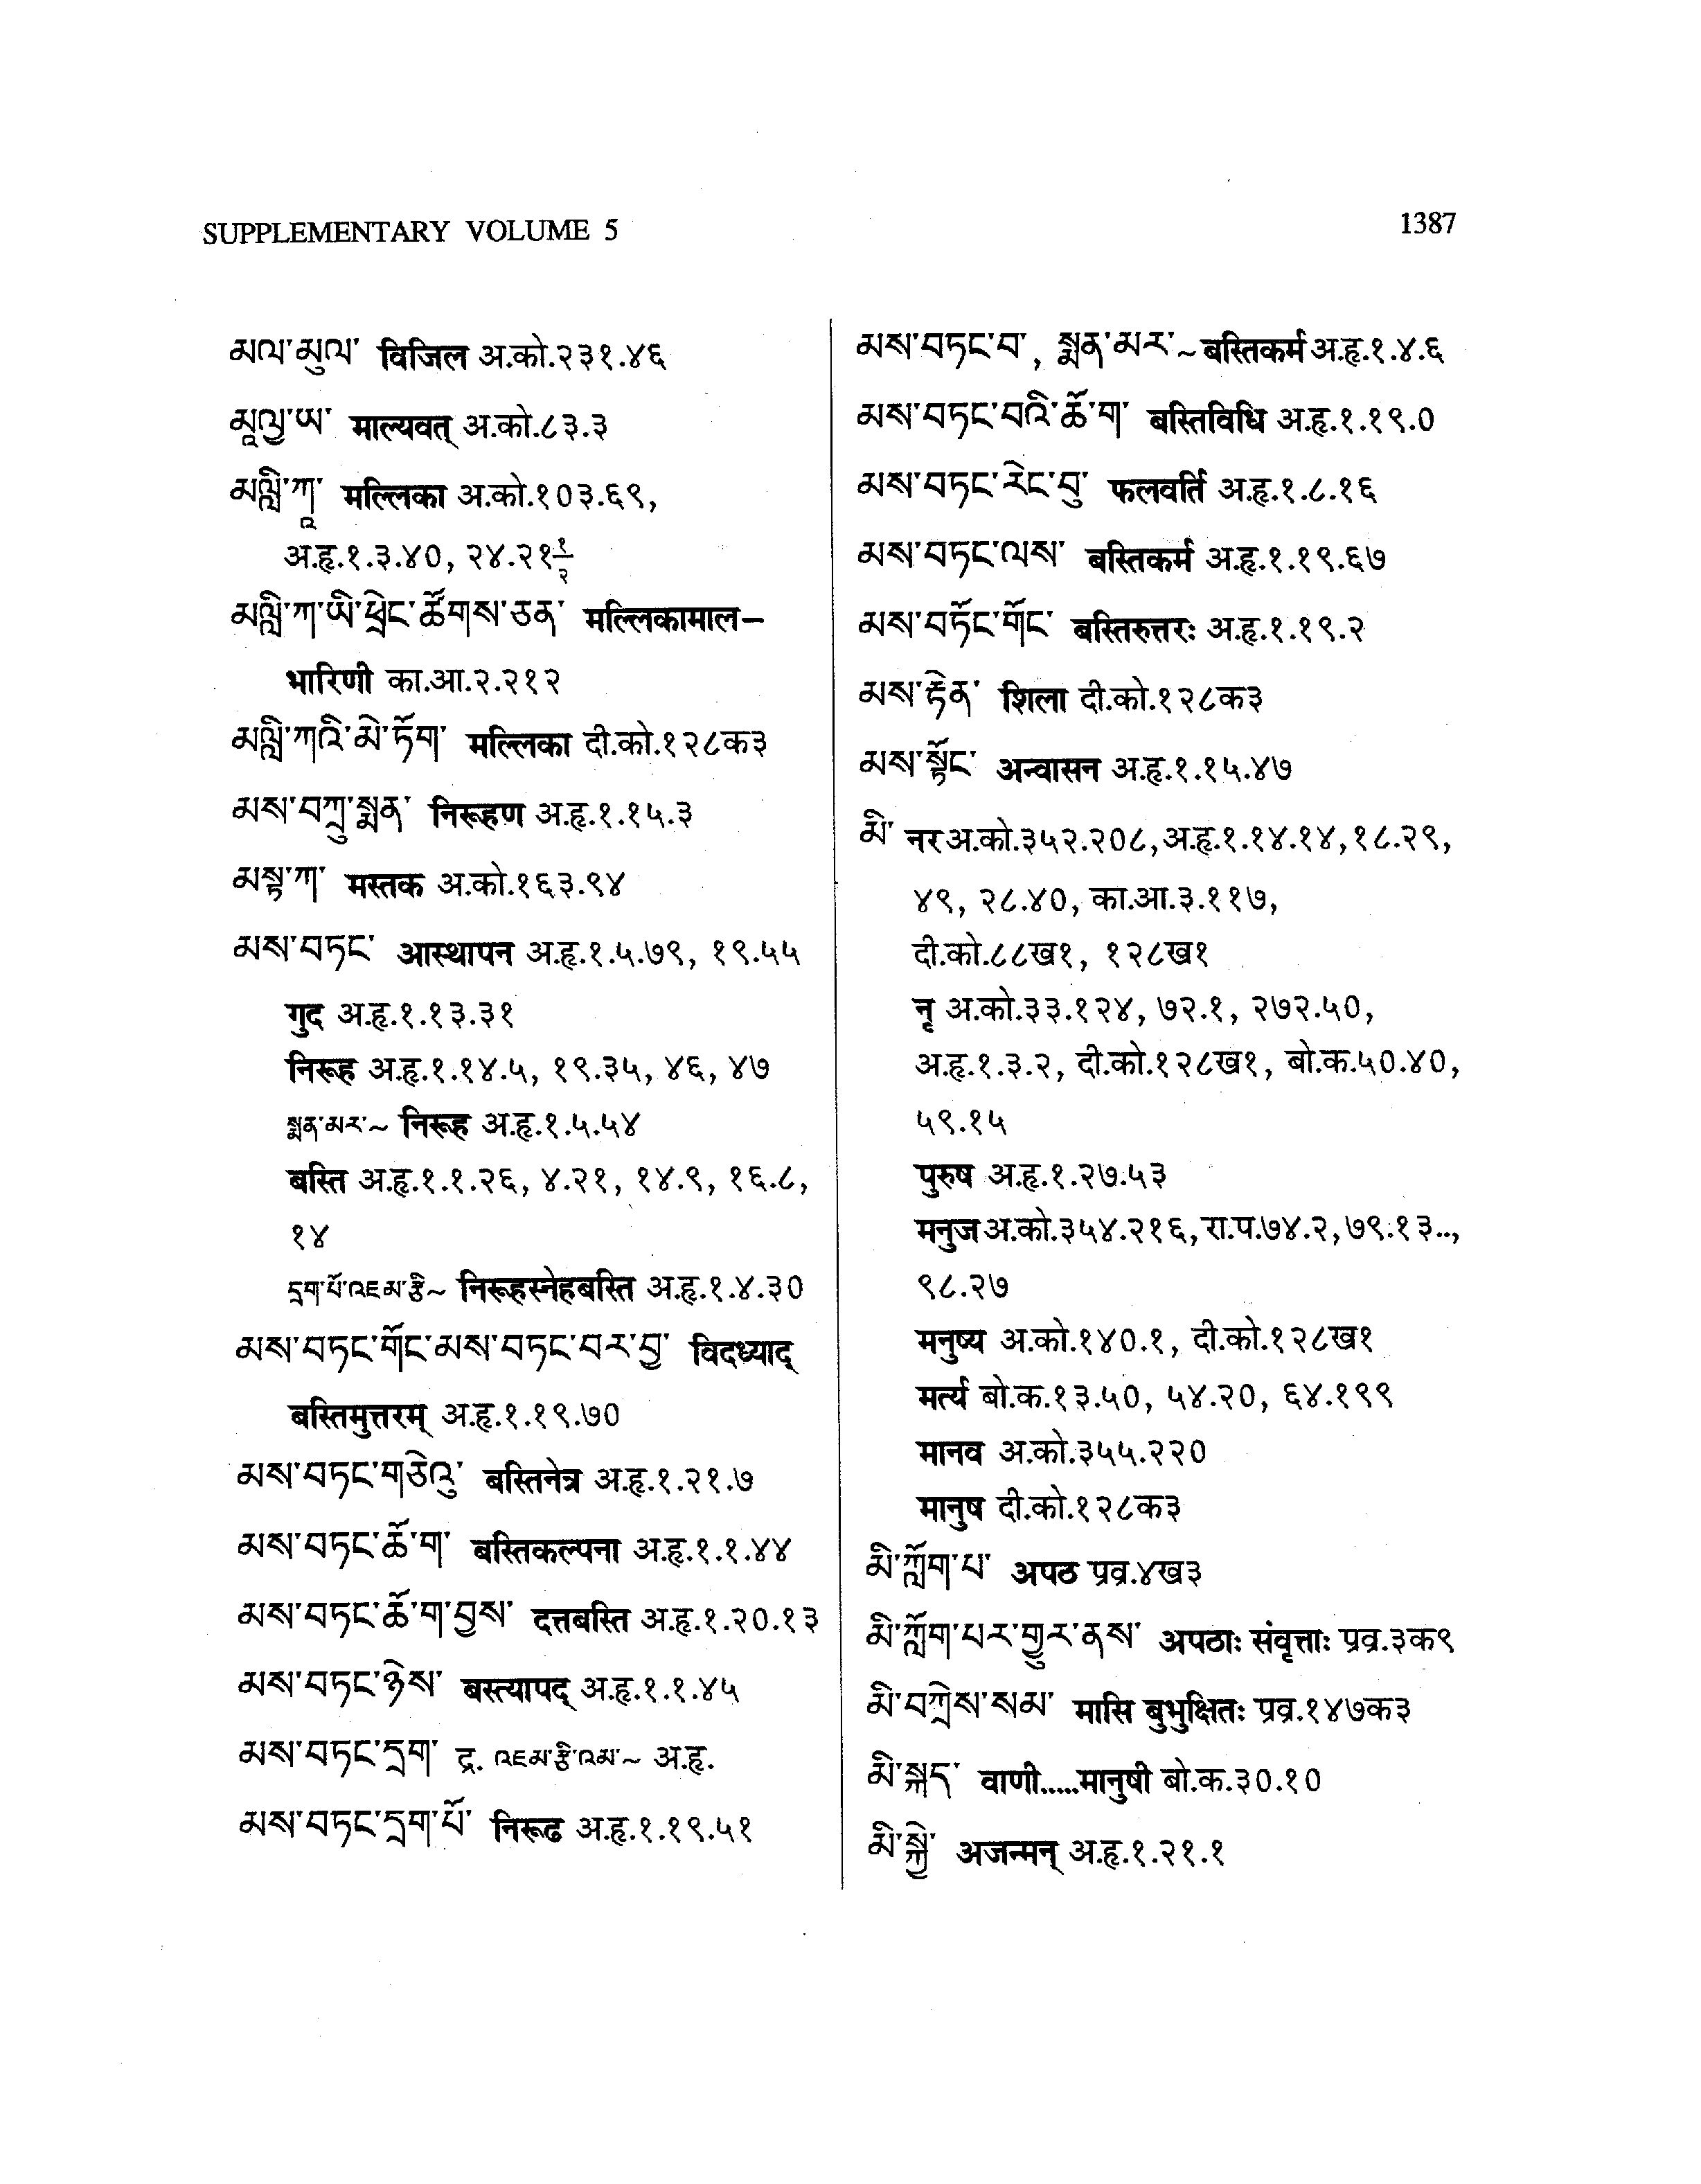 SUPPLEMENTARY VOLUME 5
1387
མལ་མུལ་ विजिल अ.को.२३१.४६
མཱལྱ་ཡ་ माल्यवत् अ.को.८३.३
མལླི་ཀཱ་ मल्लिका अ.को.१०३.६९,
अ.हृ.१.३.४०, २४.२११/२
མལླི་ཀ་ཡི་ཕྲེང་ཚོགས་ཅན་ मल्लिकामाल–
भारिणी का.आ.२.२१२
མལླི་ཀའི་མེ་ཏོག་ मल्लिका दी.को.१२८क३
མས་བཀྲུ་སྨན་ निरूहण अ.हृ.१.१५.३
མསྟ་ཀ་ मस्तक अ.को.१६३.९४
མས་བཏང་ आस्थापन अ.हृ.१.५.७९, १९.५५
गुद अ.हृ.१.१३.३१
निरूह अ.हृ.१.१४.५, १९.३५, ४६, ४७
སྨན་མར་~ निरूह अ.हृ.१.५.५४
बस्ति अ.हृ.१.१.२६, ४.२१, १४.९, १६.८,
१४
དྲག་པོ་འཇམ་རྩི་~ निरूहस्नेहबस्ति अ.हृ.१.४.३०
མས་བཏང་གོང་མས་བཏང་བར་བྱ་ विदध्याद्
बस्तिमुत्तरम् अ.हृ.१.१९.७०
མས་བཏང་གཅེའུ་ बस्तिनेत्र अ.हृ.१.२१.७
མས་བཏང་ཆོ་ག་ बस्तिकल्पना अ.हृ.१.१.४४
མས་བཏང་ཆོ་ག་བྱས་ दत्तबस्ति अ.हृ.१.२०.१३
མས་བཏང་ཉེས་ बस्त्यापद् अ.हृ.१.१.४५
མས་བཏང་དྲག་ द्र. འཇམ་རྩི་འམ་~ अ.हृ.
མས་བཏང་དྲག་པོ་ निरूढ अ.हृ.१.१९.५१
མས་བཏང་བ་, སྨན་མར་~ बस्तिकर्म अ.हृ.१.४.६
མས་བཏང་བའི་ཆོ་ག་ बस्तिविधि अ.हृ.१.१९.०
མས་བཏང་རེང་བུ་ फलवर्ति अ.हृ.१.८.१६
མས་བཏང་ལས་ बस्तिकर्म अ.हृ.१.१९.६७
མས་བཏོང་གོང་ बस्तिरुत्तरः अ.हृ.१.१९.२
མས་རྟེན་ शिला दी.को.१२८क३
མས་སྟོང་ अन्वासन अ.हृ.१.१५.४७
མི་ नर अ.को.३५२.२०८, अ.हृ.१.१४.१४, १८.२९,
४९, २८.४०, का.आ.३.११७,
दी.को.८८ख१, १२८ख१
नृ अ.को.३३.१२४, ७२.१, २७२.५०,
अ.हृ.१.३.२, दी.को.१२८ख१, बो.क.५०.४०,
५९.१५
पुरुष अ.हृ.१.२७.५३
मनुज अ.को.३५४.२१६, रा.प.७४.२, ७९.१३..,
९८.२७
मनुष्य अ.को.१४०.१, दी.को.१२८ख१
मर्त्य बो.क.१३.५०, ५४.२०, ६४.१९९
मानव अ.को.३५५.२२०
मानुष दी.को.१२८क३
མི་ཀློག་པ་ अपठ प्रव्र.४ख३
མི་ཀློག་པར་གྱུར་ནས་ अपठाः संवृत्ताः प्रव्र.३क९
མི་བཀྲེས་སམ་ मासि बुभुक्षितः प्रव्र.१४७क३
མི་སྐད་ वाणी.....मानुषी बो.क.३०.१०
མི་སྐྱེ་ अजन्मन् अ.हृ.१.२१.१